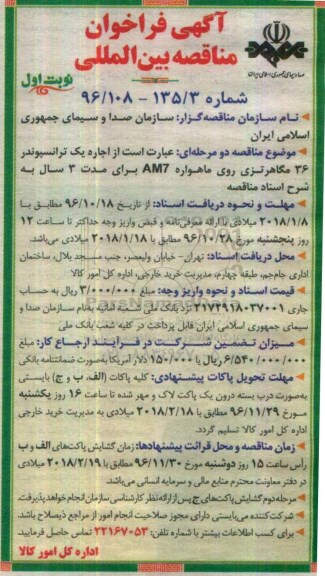 آگهی فراخوان
مناقصه بین‌المللی
نوبت اول
شماره ۱۳۵/۳ - ۹۶/۱۰۸
نام سازمان مناقصه‌گزار: سازمان صدا و سیمای جمهوری
اسلامی ایران
موضوع مناقصه دو مرحله‌ای: عبارت است از اجاره یک ترانسپوندر
۳۶ مگاهرتزی روی ماهواره AM7 برای مدت ۳ سال به
شرح اسناد مناقصه
مهلت و نحوه دریافت اسناد: از تاریخ ۹۶/۱۰/۱۸ مطابق با
۲۰۱۸/۱/۸ میلادی با ارائه معرفی‌نامه و قبض واریز وجه حداکثر تا ساعت ۱۲
روز پنجشنبه مورخ ۹۶/۱۰/۲۸ مطابق با ۲۰۱۸/۱/۱۸ میلادی می‌باشد.
محل دریافت اسناد: تهران- خیابان ولیعصر، جنب مسجد بلال، ساختمان
اداری جام‌جم، طبقه چهارم، مدیریت خرید خارجی، اداره کل امور کالا
قیمت اسناد و نحوه واریز وجه: مبلغ ۳/۰۰۰/۰۰۰ ریال به حساب
جاری ۲۱۷۲۹۱۸۰۳۷۰۰۱ نزد بانک ملی شعبه به‌نام سازمان صدا و
سیمای جمهوری اسلامی ایران قابل پرداخت در کلیه شعب بانک ملی
میزان تضمین شرکت در فرایند ارجاع کار: مبلغ
۶/۵۴۰/۰۰۰/۰۰۰ ریال یا ۱۵۰/۰۰۰ دلار آمریکا به‌صورت ضمانتنامه بانکی
مهلت تحویل پاکات پیشنهادی: کلیه پاکات (الف، ب و ج) بایستی
به‌صورت درب بسته درون یک پاکت لاک و مهر شده تا ساعت ۱۶ روز یکشنبه
مورخ ۹۶/۱۱/۲۹ مطابق با ۲۰۱۸/۲/۱۸ میلادی به مدیریت خرید خارجی
اداره کل امور کالا تسلیم گردد.
زمان مناقصه و محل قرائت پیشنهادها: زمان گشایش پاکت‌های الف و ب
رأس ساعت ۱۵ روز دوشنبه مورخ ۹۶/۱۱/۳۰ مطابق با ۲۰۱۸/۲/۱۹ میلادی
در دفتر معاونت محترم منابع مالی و سرمایه انسانی می‌باشد.
مرحله دوم گشایش پاکت‌های ج پس از ارائه نظر کارشناسی سازمان انجام خواهد پذیرفت.
شرکت‌کننده می‌بایستی دارای مجوز صلاحیت انجام امور از مراجع ذیصلاح باشد.
برای کسب اطلاعات بیشتر با شماره تلفن: ۲۲۱۶۷۰۵۳ تماس حاصل فرمایید.
اداره کل امور کالا